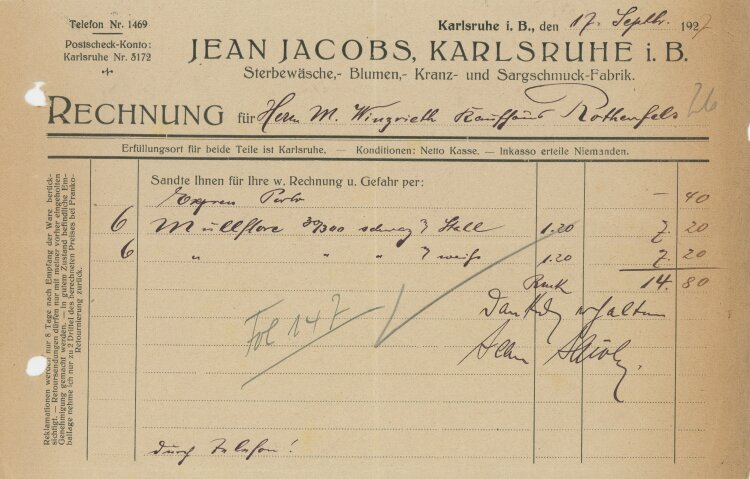 Telefon Nr. 1469
Postscheck-Konto:
Karlsruhe Nr. 3172
Karlsruhe i. B., den 17. Septbr. 1927
JEAN JACOBS, KARLSRUHE i. B.
Sterbewäsche,- Blumen,- Kranz- und Sargschmuck-Fabrik.
RECHNUNG für Herrn M. Wingrieth Kaufhaus Rothenfels
26
Erfüllungsort für beide Teile ist Karlsruhe. — Konditionen: Netto Kasse. — Inkasso erteile Niemanden.
Sandte Ihnen für Ihre w. Rechnung u. Gefahr per:
Express Porto — 40
6 Müllflore 30/300 schwarz 1.20 7. 20
6 " " " weiß 1.20 7. 20
14. 80
Fol 147
Dankend erhalten
Jean Jacobs
durch Telefon!
Reklamationen werden nur 8 Tage nach Empfang der Ware berück-
sichtigt. — Retoursendungen dürfen nur mit meiner vorher eingeholten
Genehmigung gemacht werden. — In gutem Zustand befindliche Em-
ballage nehme ich nur zu 2 Drittel des berechneten Preises bei Franko-
Retournierung zurück.